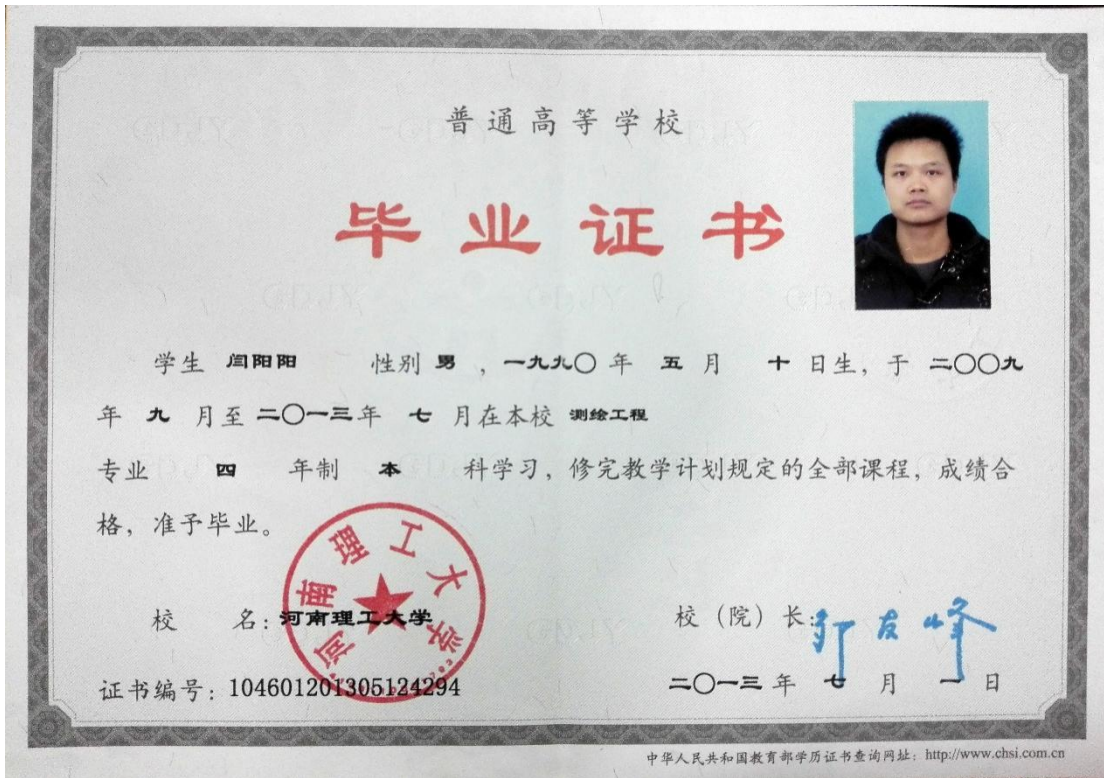 普通高等学校
毕业证书
学生 闫阳阳 性别 男 ，一九九〇 年 五 月 十 日生，于 二〇〇九
年 九 月至 二〇一三年 七 月在本校 测绘工程
专业 四 年制 本 科学习，修完教学计划规定的全部课程，成绩合
格，准予毕业。
河南理工大学
校 名：河南理工大学
校（院）长：邹友峰
证书编号：104601201305124294
二〇一三 年 七 月 一 日
中华人民共和国教育部学历证书查询网址：http://www.chsi.com.cn